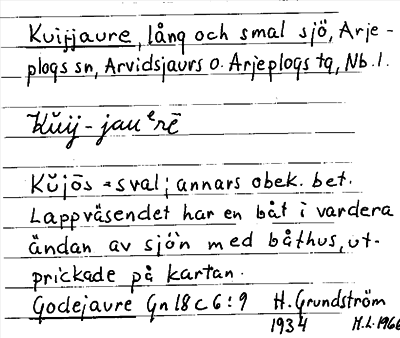 Kuijjaure, lång och smal sjö, Arje-
plogs sn, Arvidsjaurs o. Arjeplogs tg, Nb. l.
Kŭij-jauᵉrē
Kŭjōs = sval; annars obek. bet.
Lappväsendet har en båt i vardera
ändan av sjön med båthus, ut-
prickade på kartan.
Godejaure Gn 18 c 6:9 H. Grundström
1934 H.L. 1966